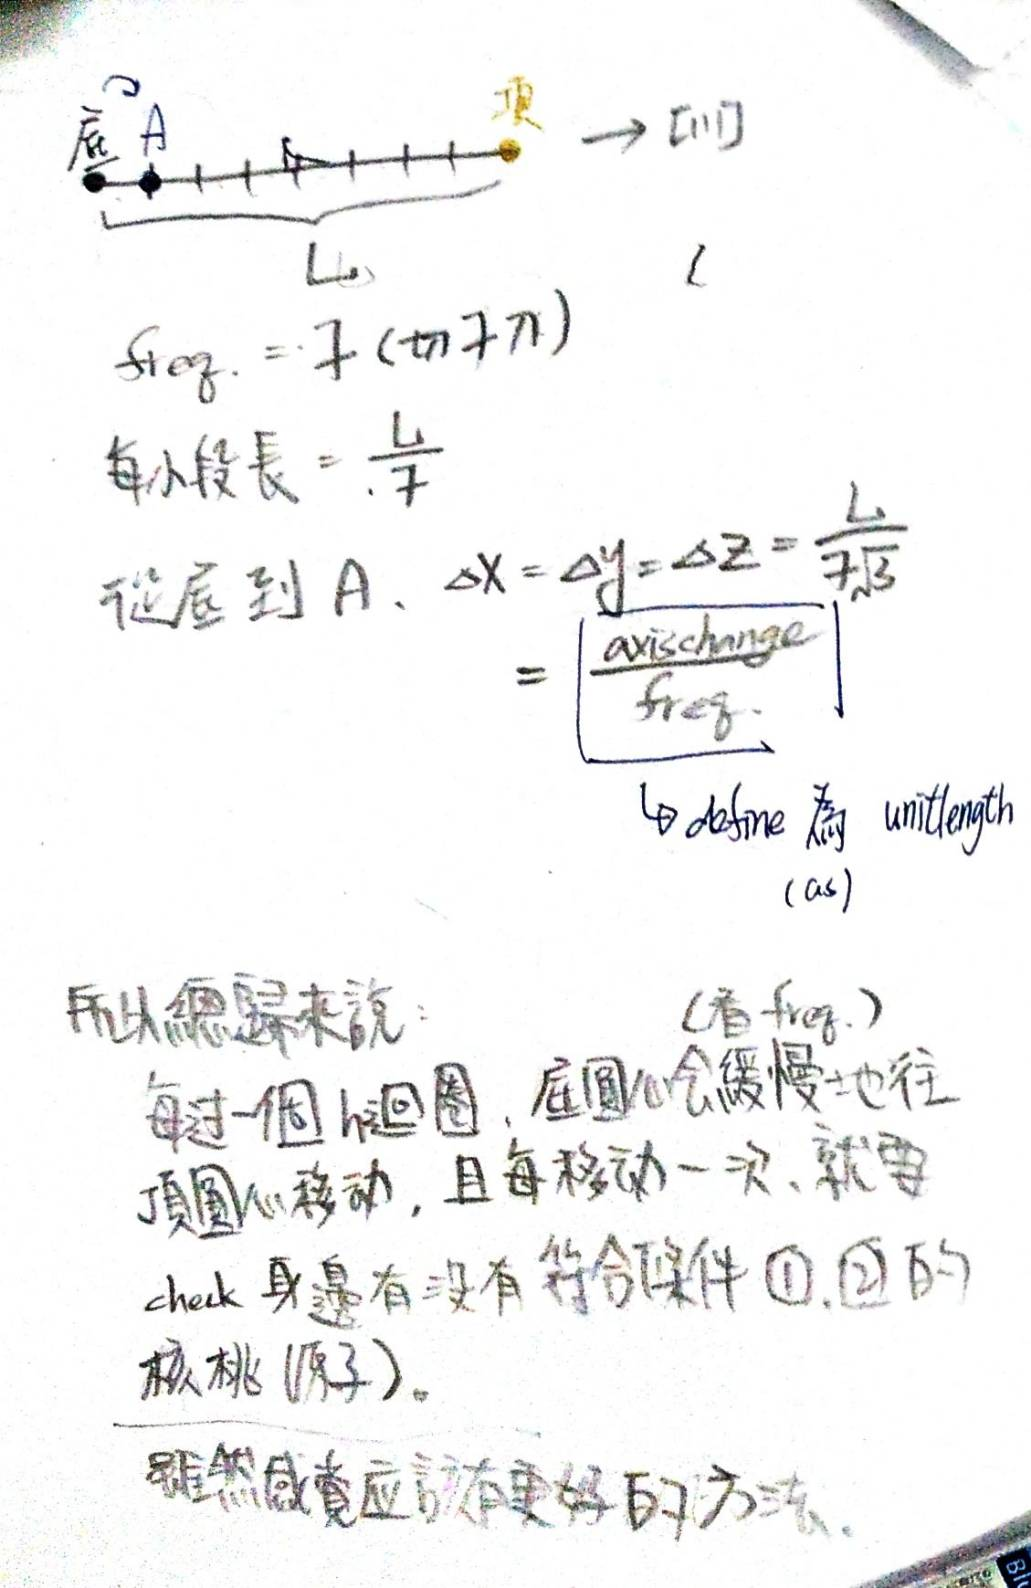 底 A 頂 → [111]
L
freq. = 7 (切7片)
每小段長 = L/7
從底到 A、 ΔX = Δy = ΔZ = L/7√3
= axischange/freq.
↳ define 為 unitlength
(as)
所以總歸來說： (看 freq.)
每过一個 h迴圈，底圓心会緩慢地往
頂圓心移动，且每移动一次、就要
check 身邊有沒有符合條件 ①、② 的
核桃 (原子)。
雖然感覺应該有更好的方法、